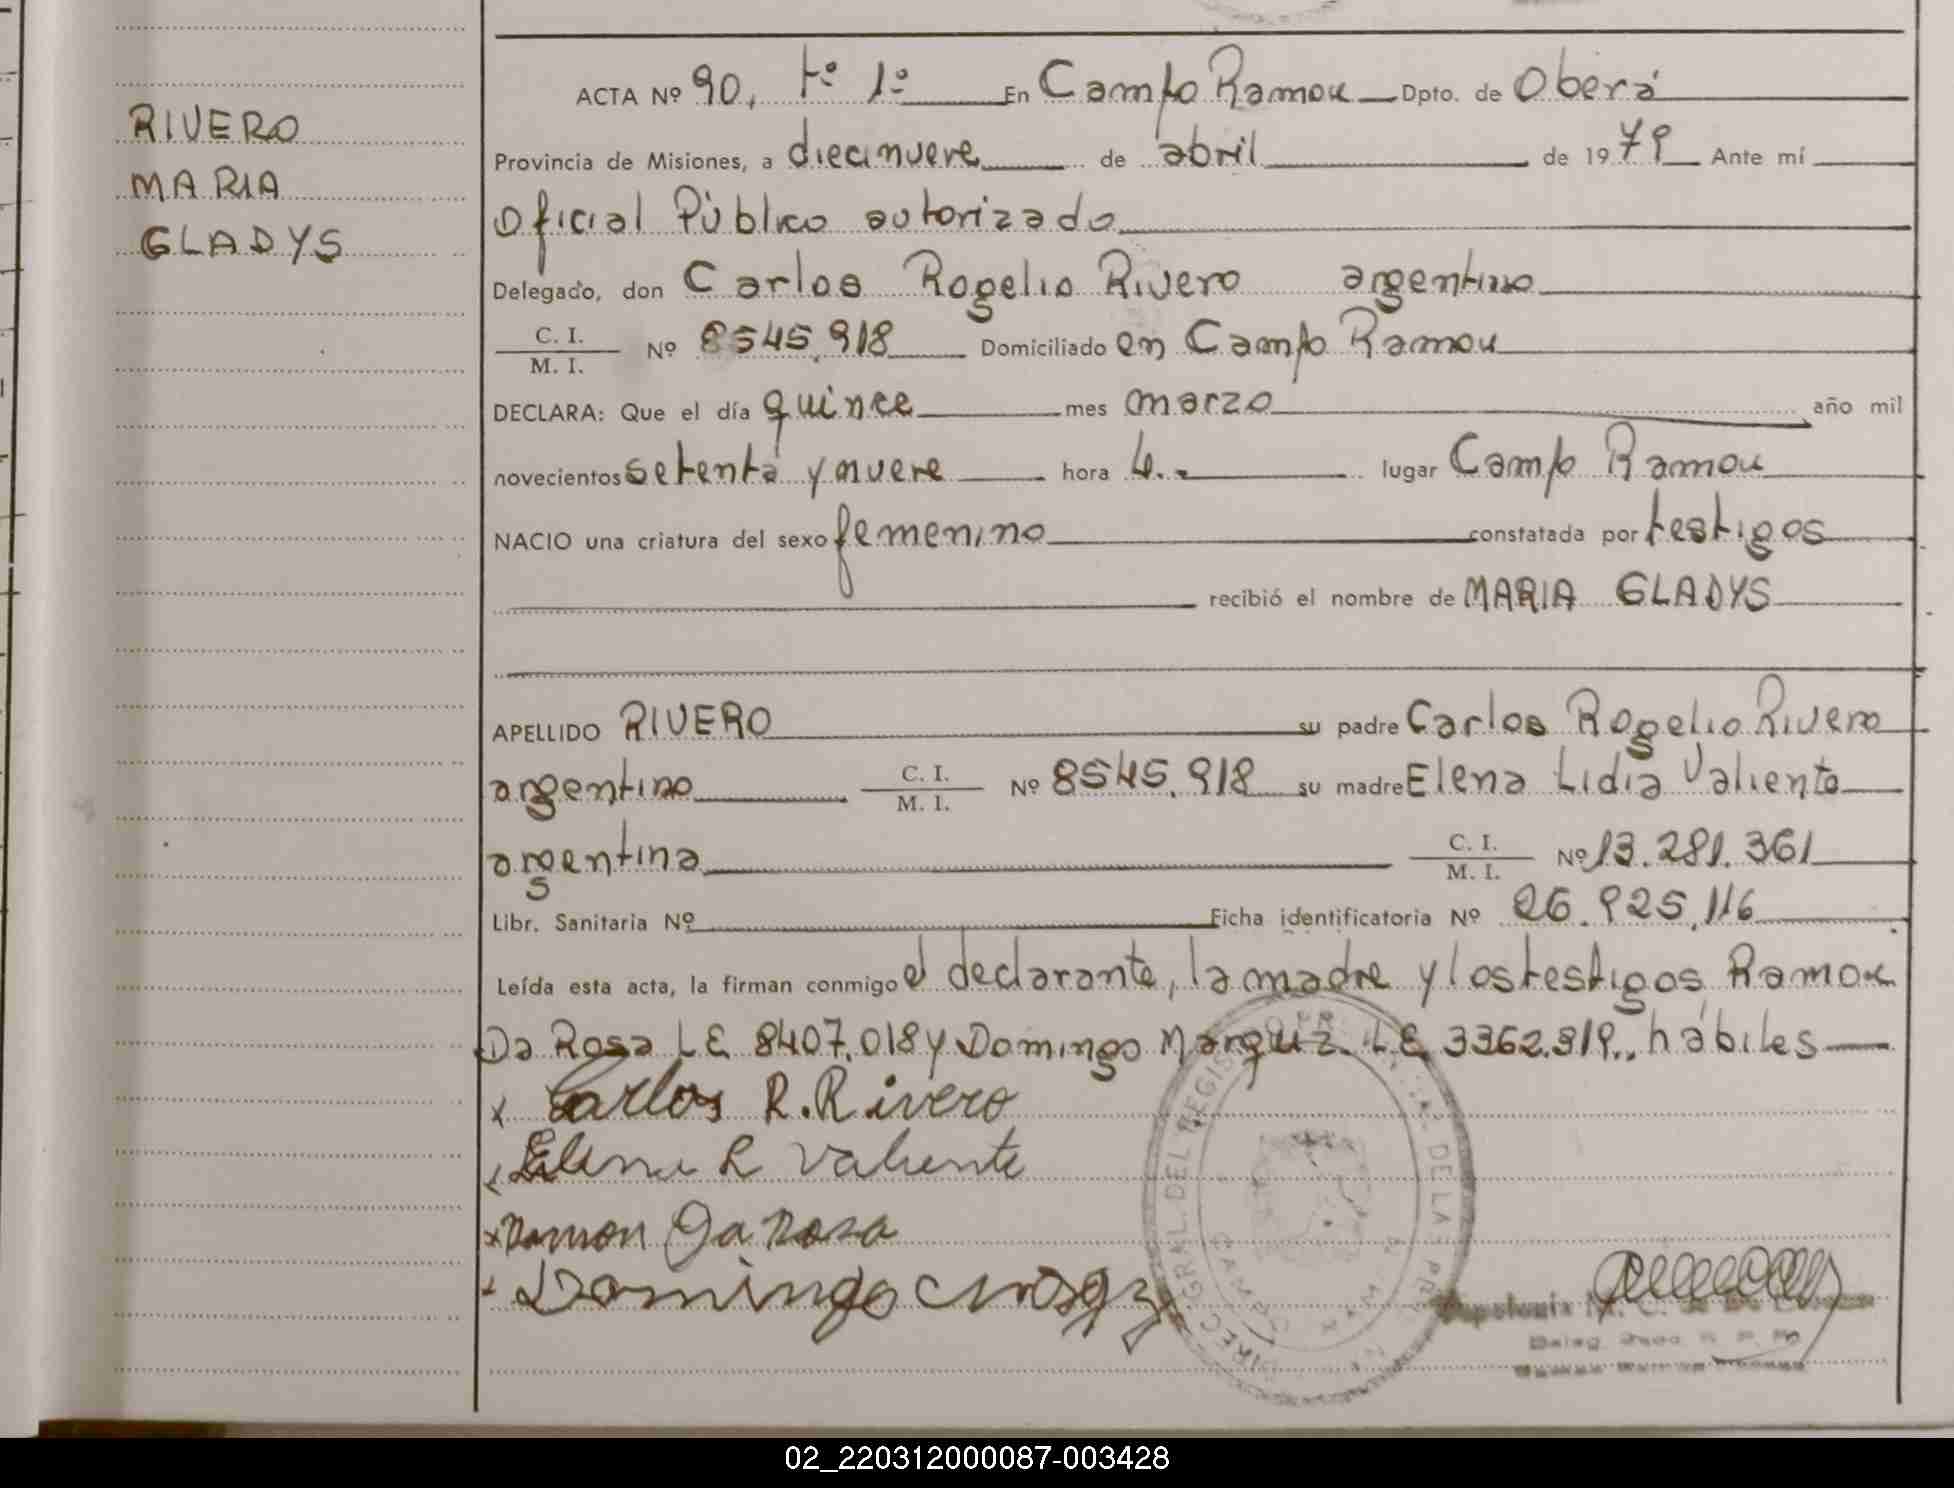 RIVERO
MARIA
GLADYS
ACTA Nº 90, tº 1º En Campo Ramon Dpto. de Oberá
Provincia de Misiones, a diecinueve de abril de 1979 Ante mí
Oficial Público autorizado
Delegado, don Carlos Rogelio Rivero argentino
C. I.
M. I. Nº 8545.918 Domiciliado en Campo Ramon
DECLARA: Que el día quince mes marzo año mil
novecientos setenta y nueve hora 4.- lugar Campo Ramon
NACIO una criatura del sexo femenino constatada por testigos
recibió el nombre de MARIA GLADYS
APELLIDO RIVERO su padre Carlos Rogelio Rivero
argentino C. I. M. I. Nº 8545.918 su madre Elena Lidia Valiente
argentina C. I. M. I. Nº 13.281.361
Libr. Sanitaria Nº Ficha identificatoria Nº 26.925.116
Leída esta acta, la firman conmigo el declarante, la madre y los testigos Ramon
Da Rosa LE 8407.018 y Domingo LE hábiles
x Carlos R. Rivero
Valiente
x Ramon Da Rosa
Domingo
DIREC. GRAL. DEL REGIS DE LA
02_220312000087-003428